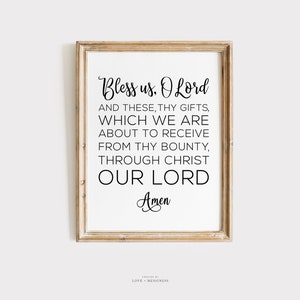 Bless us, O Lord
AND THESE, THY GIFTS,
WHICH WE ARE
ABOUT TO RECEIVE
FROM THY BOUNTY,
THROUGH CHRIST
OUR LORD
Amen
CREATED BY
LOVE + MEMORIES